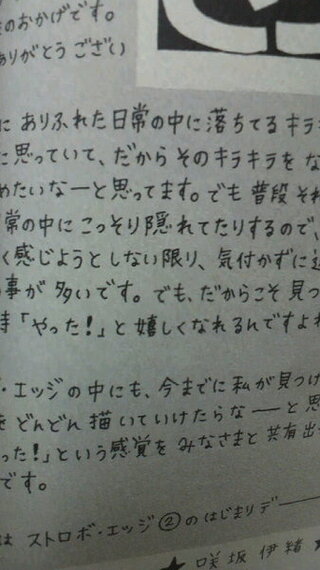 のおかげです。
ありがとうござい
に ありふれた日常の中に落ちてるキラキ
に思っていて、だから そのキラキラを な
めたいなーと思ってます。でも 普段 それ
常の中に こっそり隠れてたりするので、
く感じようとしない限り、気付かずに
事が 多いです。でも、だからこそ 見つ
時「やった!」と 嬉しくなれるんですよね
・エッジの中にも、今までに 私が見つけ
を どんどん 描いていけたらな――と 思
った!」という感覚を みなさまと 共有 出
です。
は ストロボ・エッジ②のはじまりデ――
★ 咲坂 伊緒